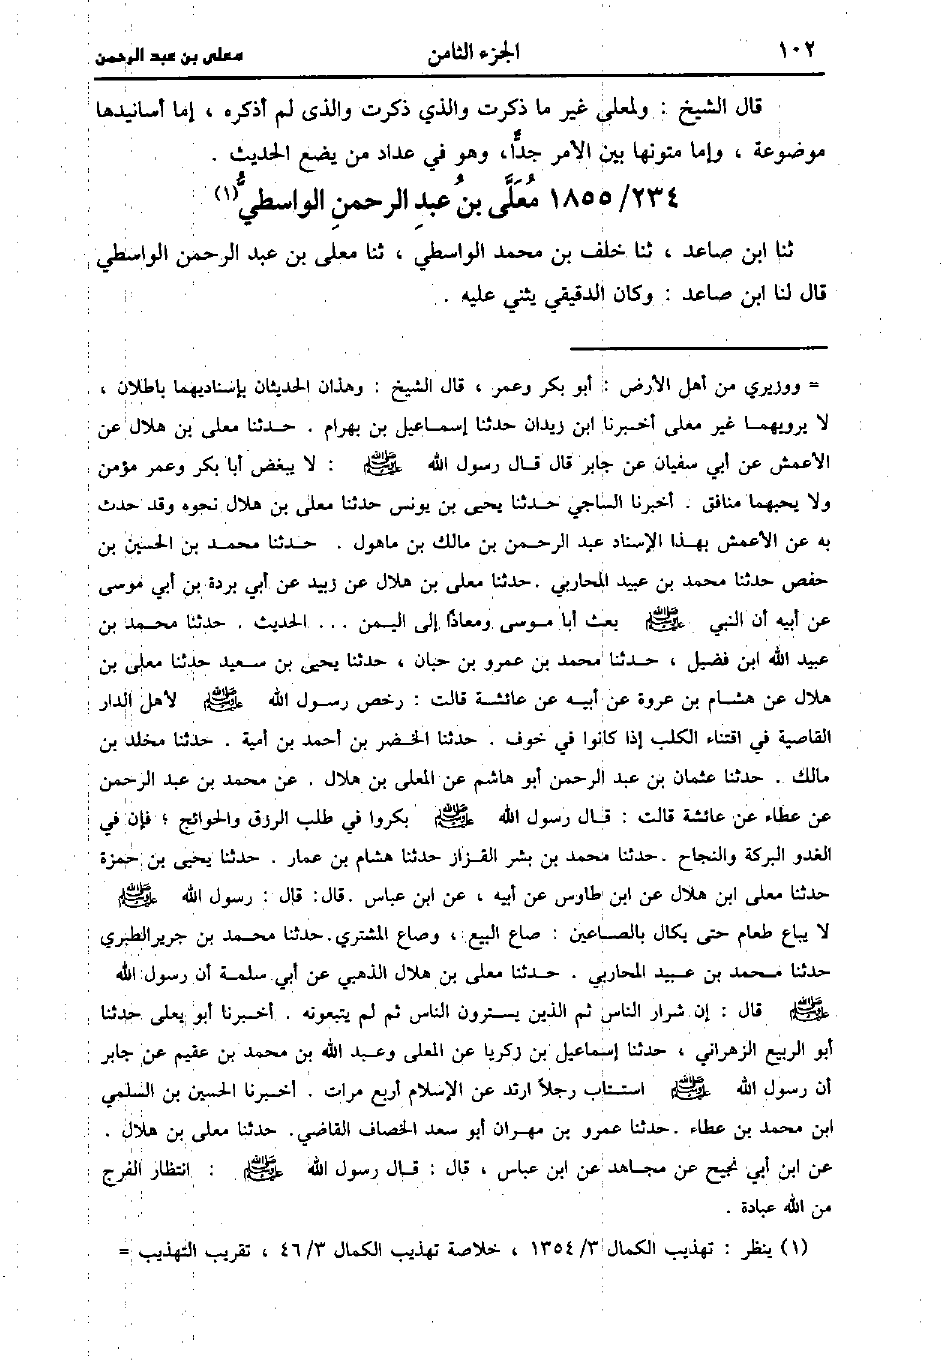 ١٠٢ الجزء الثامن معلى بن عبد الرحمن
قال الشيخ : ولمعلى غير ما ذكرت والذي ذكرت والذى لم أذكره ، إما أسانيدها
موضوعة ، وإما متونها بين الأمر جدًّا، وهو في عداد من يضع الحديث .
١٨٥٥/٢٣٤ مُعَلَّى بنُ عبدِ الرحمنِ الواسطيُّ(١)
ثنا ابن صاعد ، ثنا خلف بن محمد الواسطي ، ثنا معلى بن عبد الرحمن الواسطي
قال لنا ابن صاعد : وكان الدقيقي يثني عليه .
= ووزيري من أهل الأرض : أبو بكر وعمر ، قال الشيخ : وهذان الحديثان بإسناديهما باطلان ،
لا يرويهما غير معلى أخبرنا ابن زيدان حدثنا إسماعيل بن بهرام . حدثنا معلى بن هلال عن
الأعمش عن أبي سفيان عن جابر قال قال رسول الله ﷺ : لا يبغض أبا بكر وعمر مؤمن
ولا يحبهما منافق . أخبرنا الساجي حدثنا يحيى بن يونس حدثنا معلى بن هلال نحوه وقد حدث
به عن الأعمش بهذا الإسناد عبد الرحمن بن مالك بن ماهول . حدثنا محمد بن الحسين بن
حفص حدثنا محمد بن عبيد المحاربي .حدثنا معلى بن هلال عن زبيد عن أبي بردة بن أبي موسى
عن أبيه أن النبي ﷺ بعث أبا موسى ومعاذًا إلى اليمن ... الحديث . حدثنا محمد بن
عبيد الله ابن فضيل ، حدثنا محمد بن عمرو بن حبان ، حدثنا يحيى بن سعيد حدثنا معلى بن
هلال عن هشام بن عروة عن أبيه عن عائشة قالت : رخص رسول الله ﷺ لأهل الدار
القاصية في اقتناء الكلب إذا كانوا في خوف . حدثنا الخضر بن أحمد بن أمية . حدثنا مخلد بن
مالك . حدثنا عثمان بن عبد الرحمن أبو هاشم عن المعلى بن هلال . عن محمد بن عبد الرحمن
عن عطاء عن عائشة قالت : قال رسول الله ﷺ بكروا في طلب الرزق والحوائج ؛ فإن في
الغدو البركة والنجاح .حدثنا محمد بن بشر القزاز حدثنا هشام بن عمار . حدثنا يحيى بن حمزة
حدثنا معلى ابن هلال عن ابن طاوس عن أبيه ، عن ابن عباس .قال: قال : رسول الله ﷺ
لا يباع طعام حتى يكال بالصاعين : صاع البيع ، وصاع المشتري.حدثنا محمد بن جريرالطبري
حدثنا محمد بن عبيد المحاربي . حدثنا معلى بن هلال الذهبي عن أبي سلمة أن رسول الله
ﷺ قال : إن شرار الناس ثم الذين يسترون الناس ثم لم يتبعونه . أخبرنا أبو يعلى حدثنا
أبو الربيع الزهراني ، حدثنا إسماعيل بن زكريا عن المعلى وعبد الله بن محمد بن عقيم عن جابر
أن رسول الله ﷺ استتاب رجلاً ارتد عن الإسلام أربع مرات . أخبرنا الحسين بن السلمي
ابن محمد بن عطاء .حدثنا عمرو بن مهران أبو سعد الخصاف القاضي. حدثنا معلى بن هلال .
عن ابن أبي نجيح عن مجاهد عن ابن عباس ، قال : قال رسول الله ﷺ : انتظار الفرج
من الله عبادة .
(١) ينظر : تهذيب الكمال ١٣٥٤/٣ ، خلاصة تهذيب الكمال ٤٦/٣ ، تقريب التهذيب =